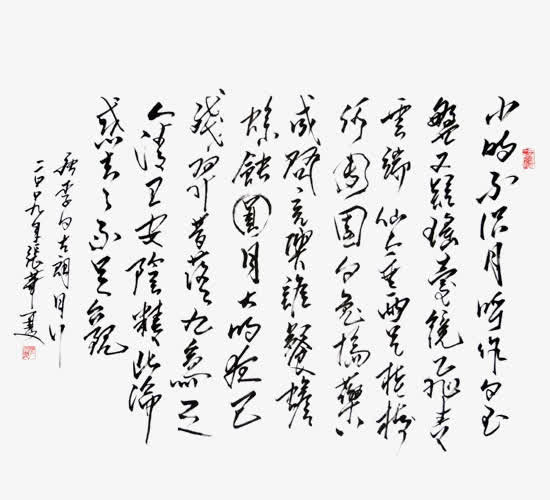 小时不识月呼作白玉
盤又疑瑶臺镜飞青
雲端仙人垂两足桂樹
何團團白兔搗藥
成問言與誰餐蟾
蜍蝕圓大明夜已
殘羿昔落九烏天
人清且安陰精此淪
惑去去不足觀
李白古朗月行
二〇〇九年張華夏